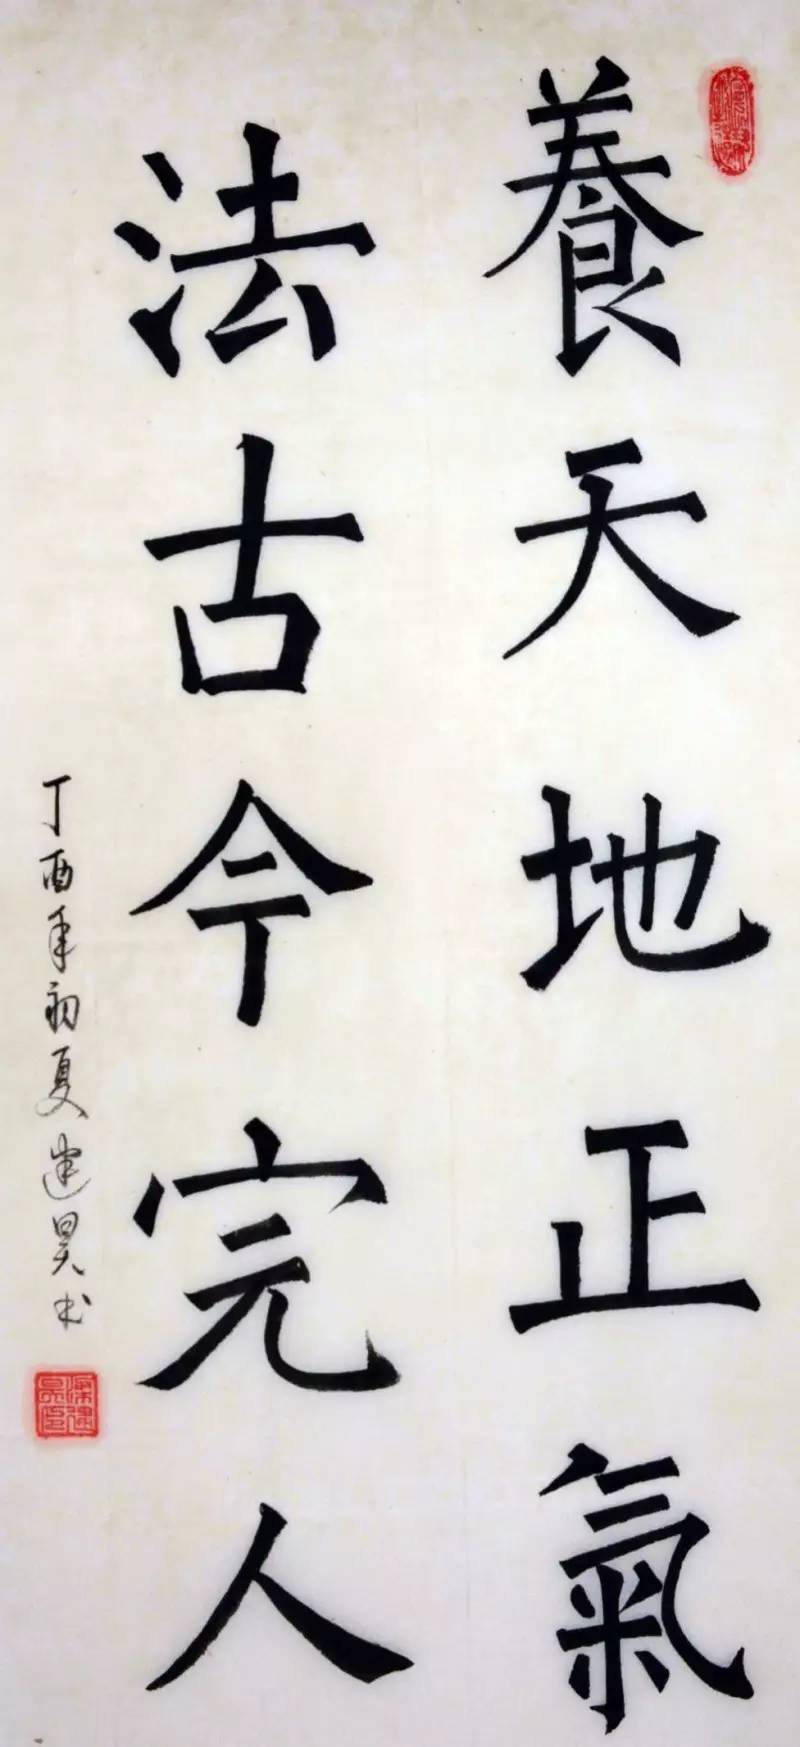 養天地正氣
法古今完人
丁酉年初夏建昊书